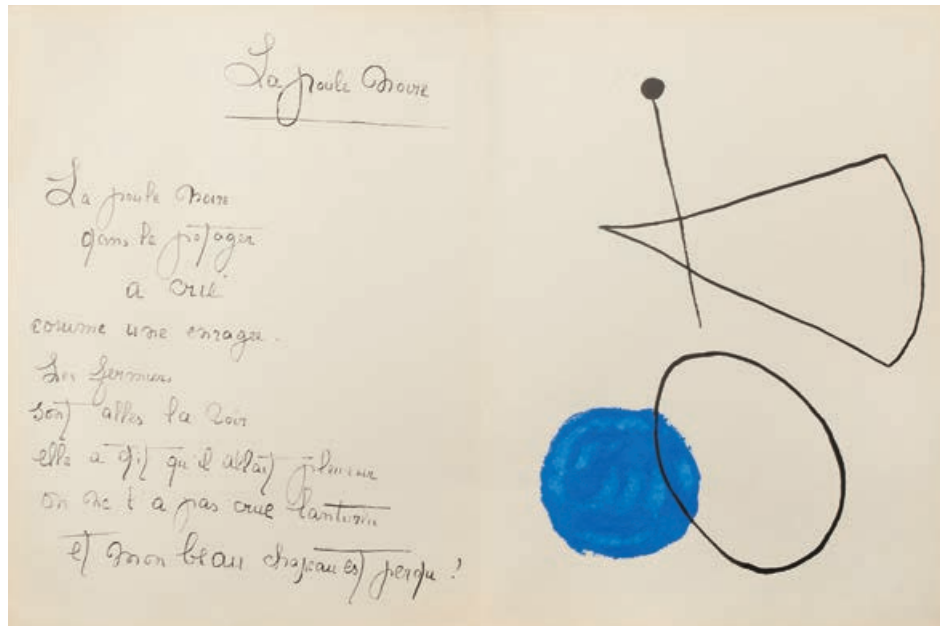 La poule noire
La poule noire
dans le potager
a crié
comme une enragée.
Les fermiers
sont allés la voir
elle a dit qu'il allait pleuvoir
on ne l'a pas crue lanturlu
et mon beau chapeau est perdu !